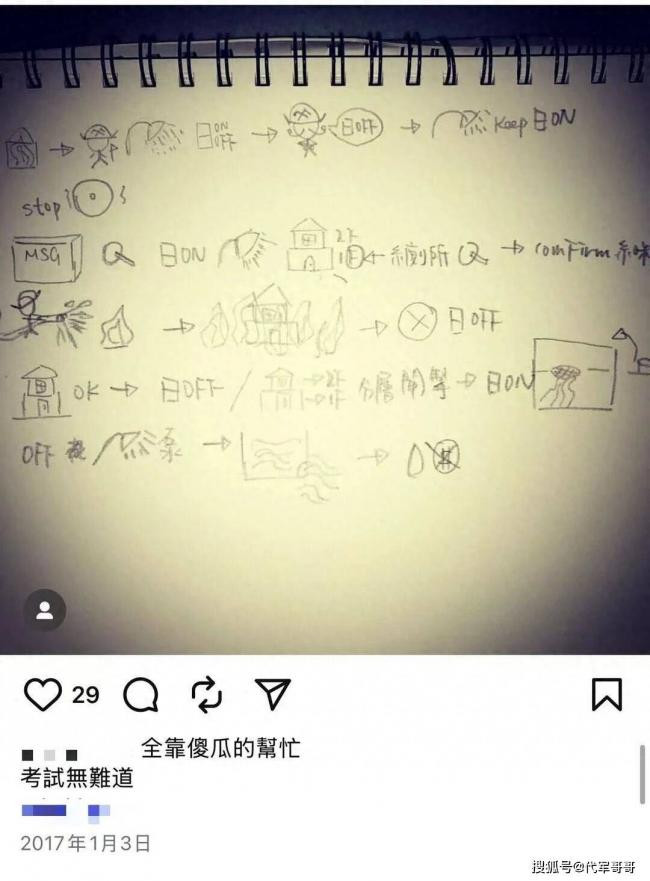 日 ON OFF 日OFF keep 日ON
stop
MSG 日ON 2F 廁所 comfirm
日OFF
OK 日OFF / 2F 1F 分層開掣 日ON
OFF 泵
$
29
全靠傻瓜的幫忙
考試無難道
2017年1月3日
搜狐号@代军哥哥